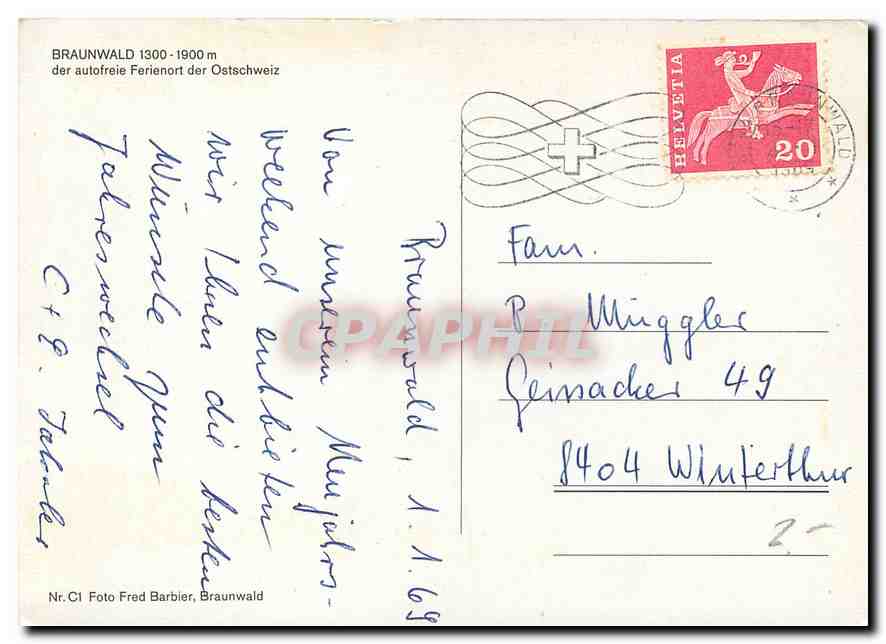 BRAUNWALD 1300-1900 m
der autofreie Ferienort der Ostschweiz
HELVETIA
20
Braunwald, 1.1.69
Von unserem Neujahrs-
weekend entbieten
wir Ihnen die besten
Wünsche zum
Jahreswechsel
C + E.
Fam.
P. Müggler
Geissacker 49
8404 Winterthur
2.-
Nr. C1 Foto Fred Barbier, Braunwald
CPAPHIL